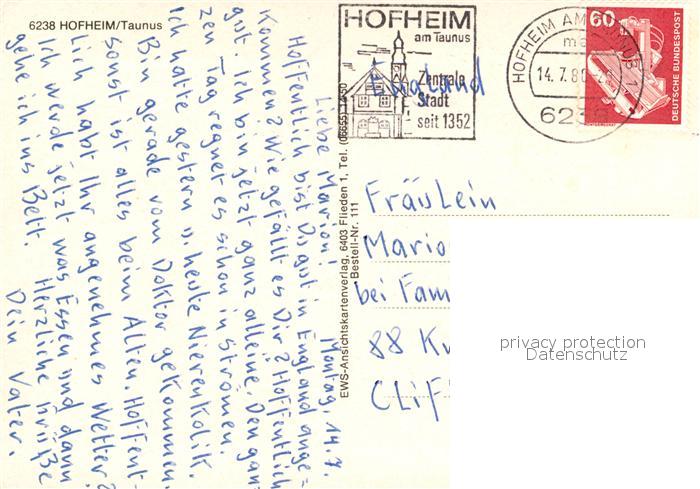 6238 HOFHEIM/Taunus
HOFHEIM
am Taunus
Zentrale
Stadt
seit 1352
HOFHEIM AM TAUNUS 1
14.7.80
6238
60
DEUTSCHE BUNDESPOST
England
Montag, 14.7.
Liebe Marion!
Hoffentlich bist Du gut in England ange=
kommen? Wie gefällt es Dir? Hoffentlich
gut. Ich bin jetzt ganz alleine. Den gan=
zen Tag regnet es schon in Strömen.
Ich hatte gestern u. heute Nierenkolik.
Bin gerade vom Doktor gekommen.
Sonst ist alles beim Alten. Hoffent-
lich habt Ihr angenehmes Wetter?
Ich werde jetzt was Essen und dann
gehe ich ins Bett. Herzliche Grüße
Dein Vater.
EWS-Ansichtskartenverlag, 6403 Flieden 1, Tel. (06655)
Bestell-Nr. 111
Fräulein
Mario
bei Fam
88 Kn
Clif
privacy protection
Datenschutz